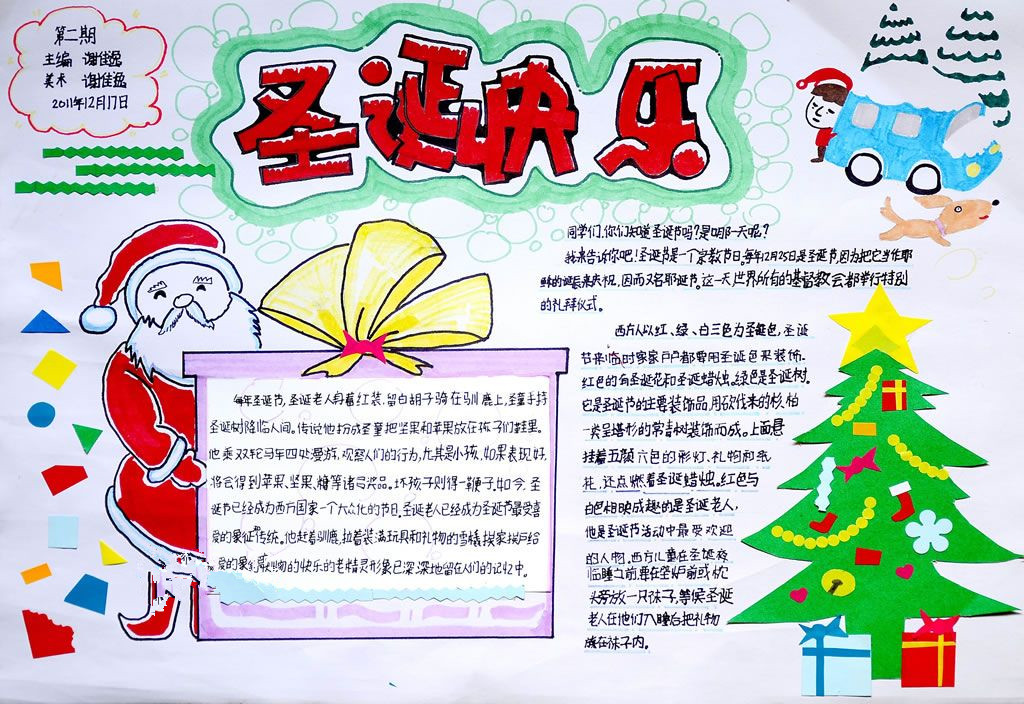 第二期
主编 谢佳逸
美术 谢佳逸
2011年12月17日
圣诞快乐
同学们,你们知道圣诞节吗?是哪一天呢?
我来告诉你吧!圣诞节是一个宗教节日,每年12月25日是圣诞节.因为把它当作耶
稣的诞辰来庆祝,因而又名耶诞节.这一天世界所有的基督教会都举行特别
的礼拜仪式。
西方人以红、绿、白三色为圣诞色,圣诞
节来临时家家户户都要用圣诞色来装饰.
红色的有圣诞花和圣诞蜡烛.绿色是圣诞树.
它是圣诞节的主要装饰品,用砍伐来的杉,柏
一类呈塔形的常青树装饰而成。上面悬
挂着五颜六色的彩灯、礼物和纸
花,还点燃着圣诞蜡烛。红色与
白色相映成趣的是圣诞老人,
他是圣诞节活动中最受欢迎
的人物.西方儿童在圣诞夜
临睡之前,要在壁炉前或枕
头旁放一只袜子,等候圣诞
老人在他们入睡后把礼物
放在袜子内。
每年圣诞节,圣诞老人身着红装、留白胡子骑在驯鹿上,圣童手持
圣诞树降临人间。传说他扮成圣童把坚果和苹果放在孩子们鞋里。
他乘双轮马车四处漫游,观察人们的行为,尤其是小孩,如果表现好,
将会得到苹果、坚果、糖等诸多奖品。坏孩子则得一鞭子.如今,圣
诞节已经成为西方国家一个大众化的节日.圣诞老人已经成为圣诞节最受喜
爱的象征传统。他赶着驯鹿,拉着装满玩具和礼物的雪橇挨家挨户给
物的快乐的老精灵形象已深深地留在人们的记忆中。